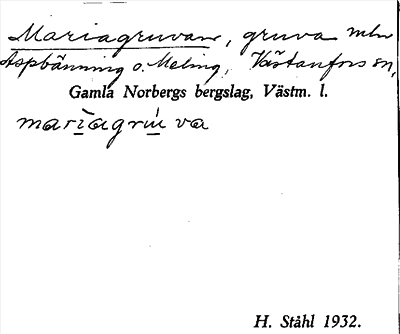 Mariagruvan, gruva mln
Aspbänning o. Meling, Västanfors sn,
Gamla Norbergs bergslag, Västm. l.
marìagrú va
H. Ståhl 1932.